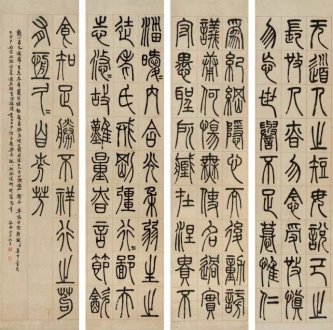 无道人之短无說己之
長施人慎勿念受施慎
勿忘世譽不足慕惟仁
為紀綱隱心而後動謗
議庸何傷无使名過實
守愚聖所臧在涅貴不
淄曖曖內含光柔弱生之
徒老氏誡剛彊行行鄙夫
志悠悠故難量慎言節飲
食知足勝不祥行之苟
有恆久久自芬芳